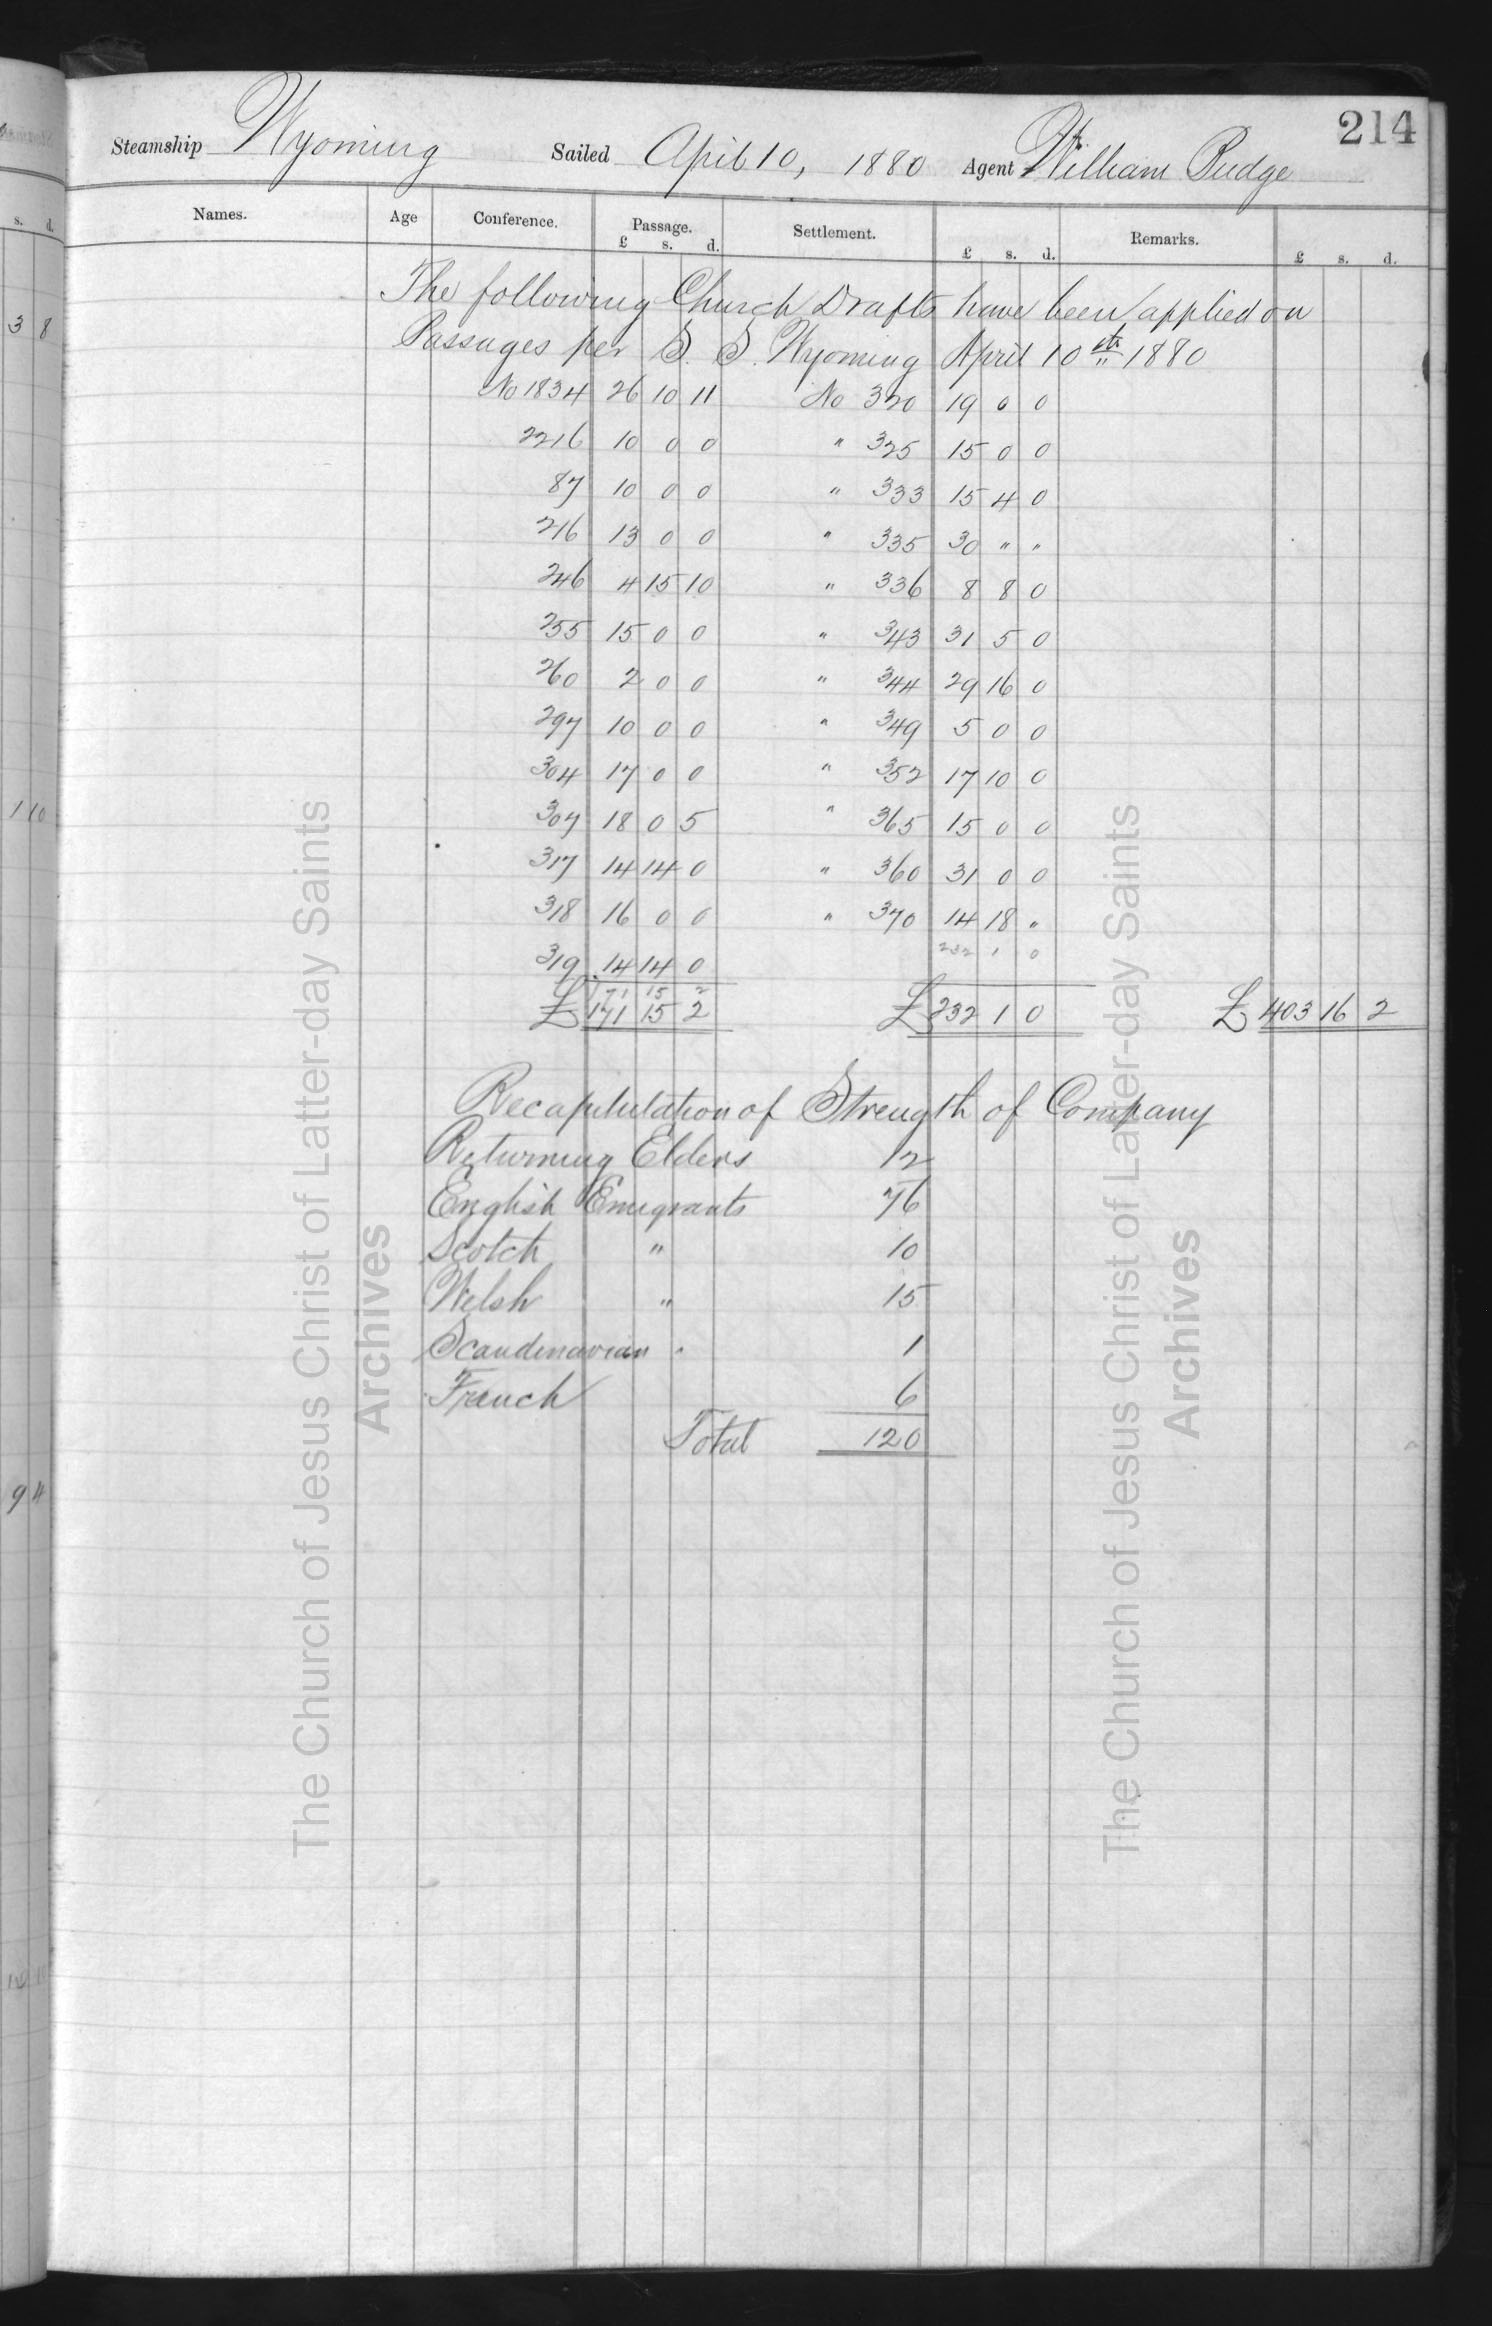 214
Steamship Wyoming Sailed April 10, 1880 Agent William Budge
Names. Age Conference. Passage. Settlement. Remarks.
£ s. d. £ s. d. £ s. d.
The following Church Drafts have been applied on
Passages per S. S. Wyoming April 10th 1880
No 1834 26 10 11 No 320 19 0 0
2216 10 0 0 " 325 15 0 0
87 10 0 0 " 333 15 4 0
216 13 0 0 " 335 30 " "
246 4 15 10 " 336 8 8 0
255 15 0 0 " 343 31 5 0
260 2 0 0 " 344 29 16 0
297 10 0 0 " 349 5 0 0
304 17 0 0 " 352 17 10 0
307 18 0 5 " 365 15 0 0
317 14 14 0 " 360 31 0 0
318 16 0 0 " 370 14 18 "
232 1 0
319 14 14 0
171 15 2
£ 171 15 2 £ 232 1 0 £ 403 16 2
Recapitulation of Strength of Company
Returning Elders 12
English Emigrants 76
Scotch " 10
Welsh " 15
Scandinavian " 1
French 6
Total 120
s. d.
3 8
1 10
9 4
The Church of Jesus Christ of Latter-day Saints
Archives
The Church of Jesus Christ of Latter-day Saints
Archives